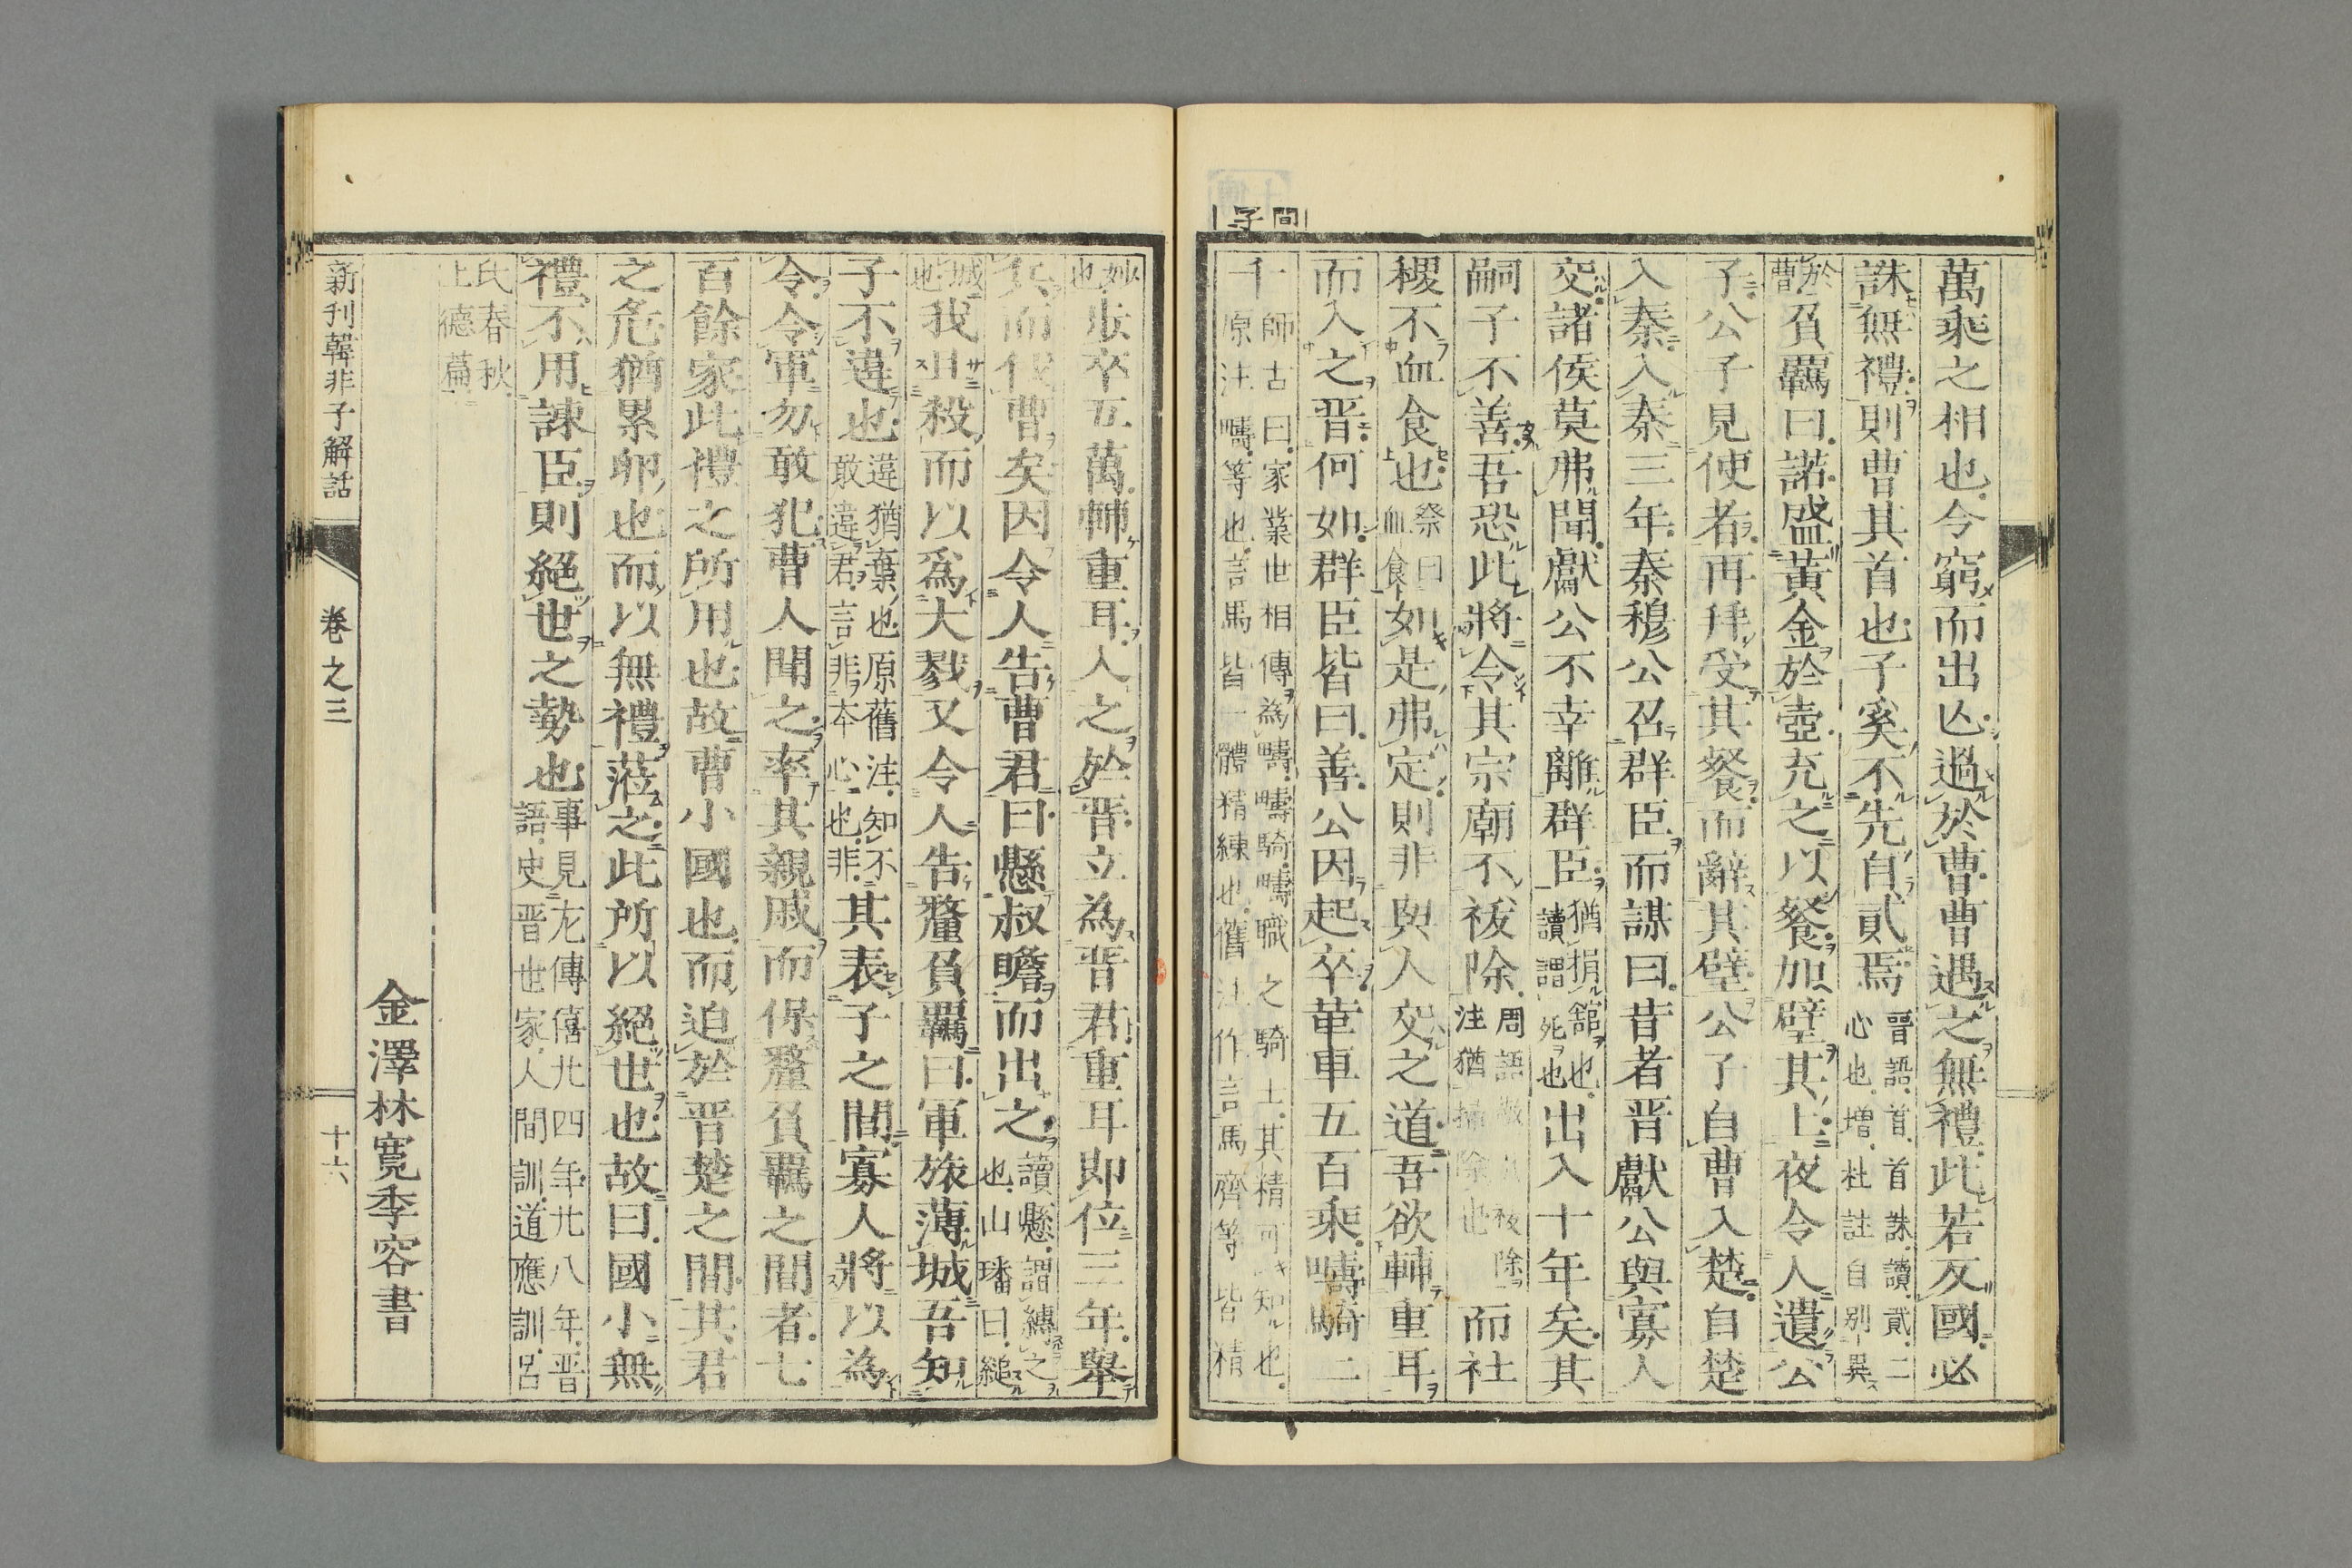 萬乘之相也今窮而出亾過於曹曹遇之無禮此若反國必
誅無禮則曹其首也子奚不先自貳焉晉語首首誅讀貳二心也増杜註自別異
於曹負羈曰諾盛黃金於壺充之以餐加壁其上夜令人遺公
子公子見使者再拜受其餐而辭其壁公子自曹入楚自楚
入秦入秦三年秦穆公召群臣而謀曰昔者晋獻公與寡人
交諸侯莫弗聞獻公不幸離群臣猶捐舘也讀謂死也出入十年矣其
嗣子不善吾恐此將令其宗廟不祓除周語祓除注猶掃除也而社
稷不血食也祭曰血食如是弗定則非與人交之道吾欲輔重耳
而入之晋何如群臣皆曰善公因起卒革車五百乘疇騎二
千師古曰家業世相傳為疇疇騎疇職之騎士其精可知也原注疇等也言馬皆一體精練也舊注作言馬齊等皆精
妙也步卒五萬輔重耳入之於晋立為晋君重耳即位三年舉
兵而伐曹矣因令人告曹君曰懸叔瞻而出之讀懸謂縳之也山璠曰縋
城也我且殺而以爲大戮又令人告釐負羈曰軍旅薄城吾知
子不違也違猶棄也原舊注知不敢違君言非本心也非其表子之閭寡人將以為
令令軍勿敢犯曹人聞之率其親戚而保釐負羈之閭者七
百餘家此禮之所用也故曹小國也而迫於晋楚之間其君
之危猶累卵也而以無禮蒞之此所以絕世也故曰國小無
禮不用諫臣則絕世之勢也事見左傳僖廿四年廿八年晋語史晋世家人間訓道應訓呂
氏春秋上德篇
金澤林寛季容書
新刊韓非子解詁
卷之三
十六